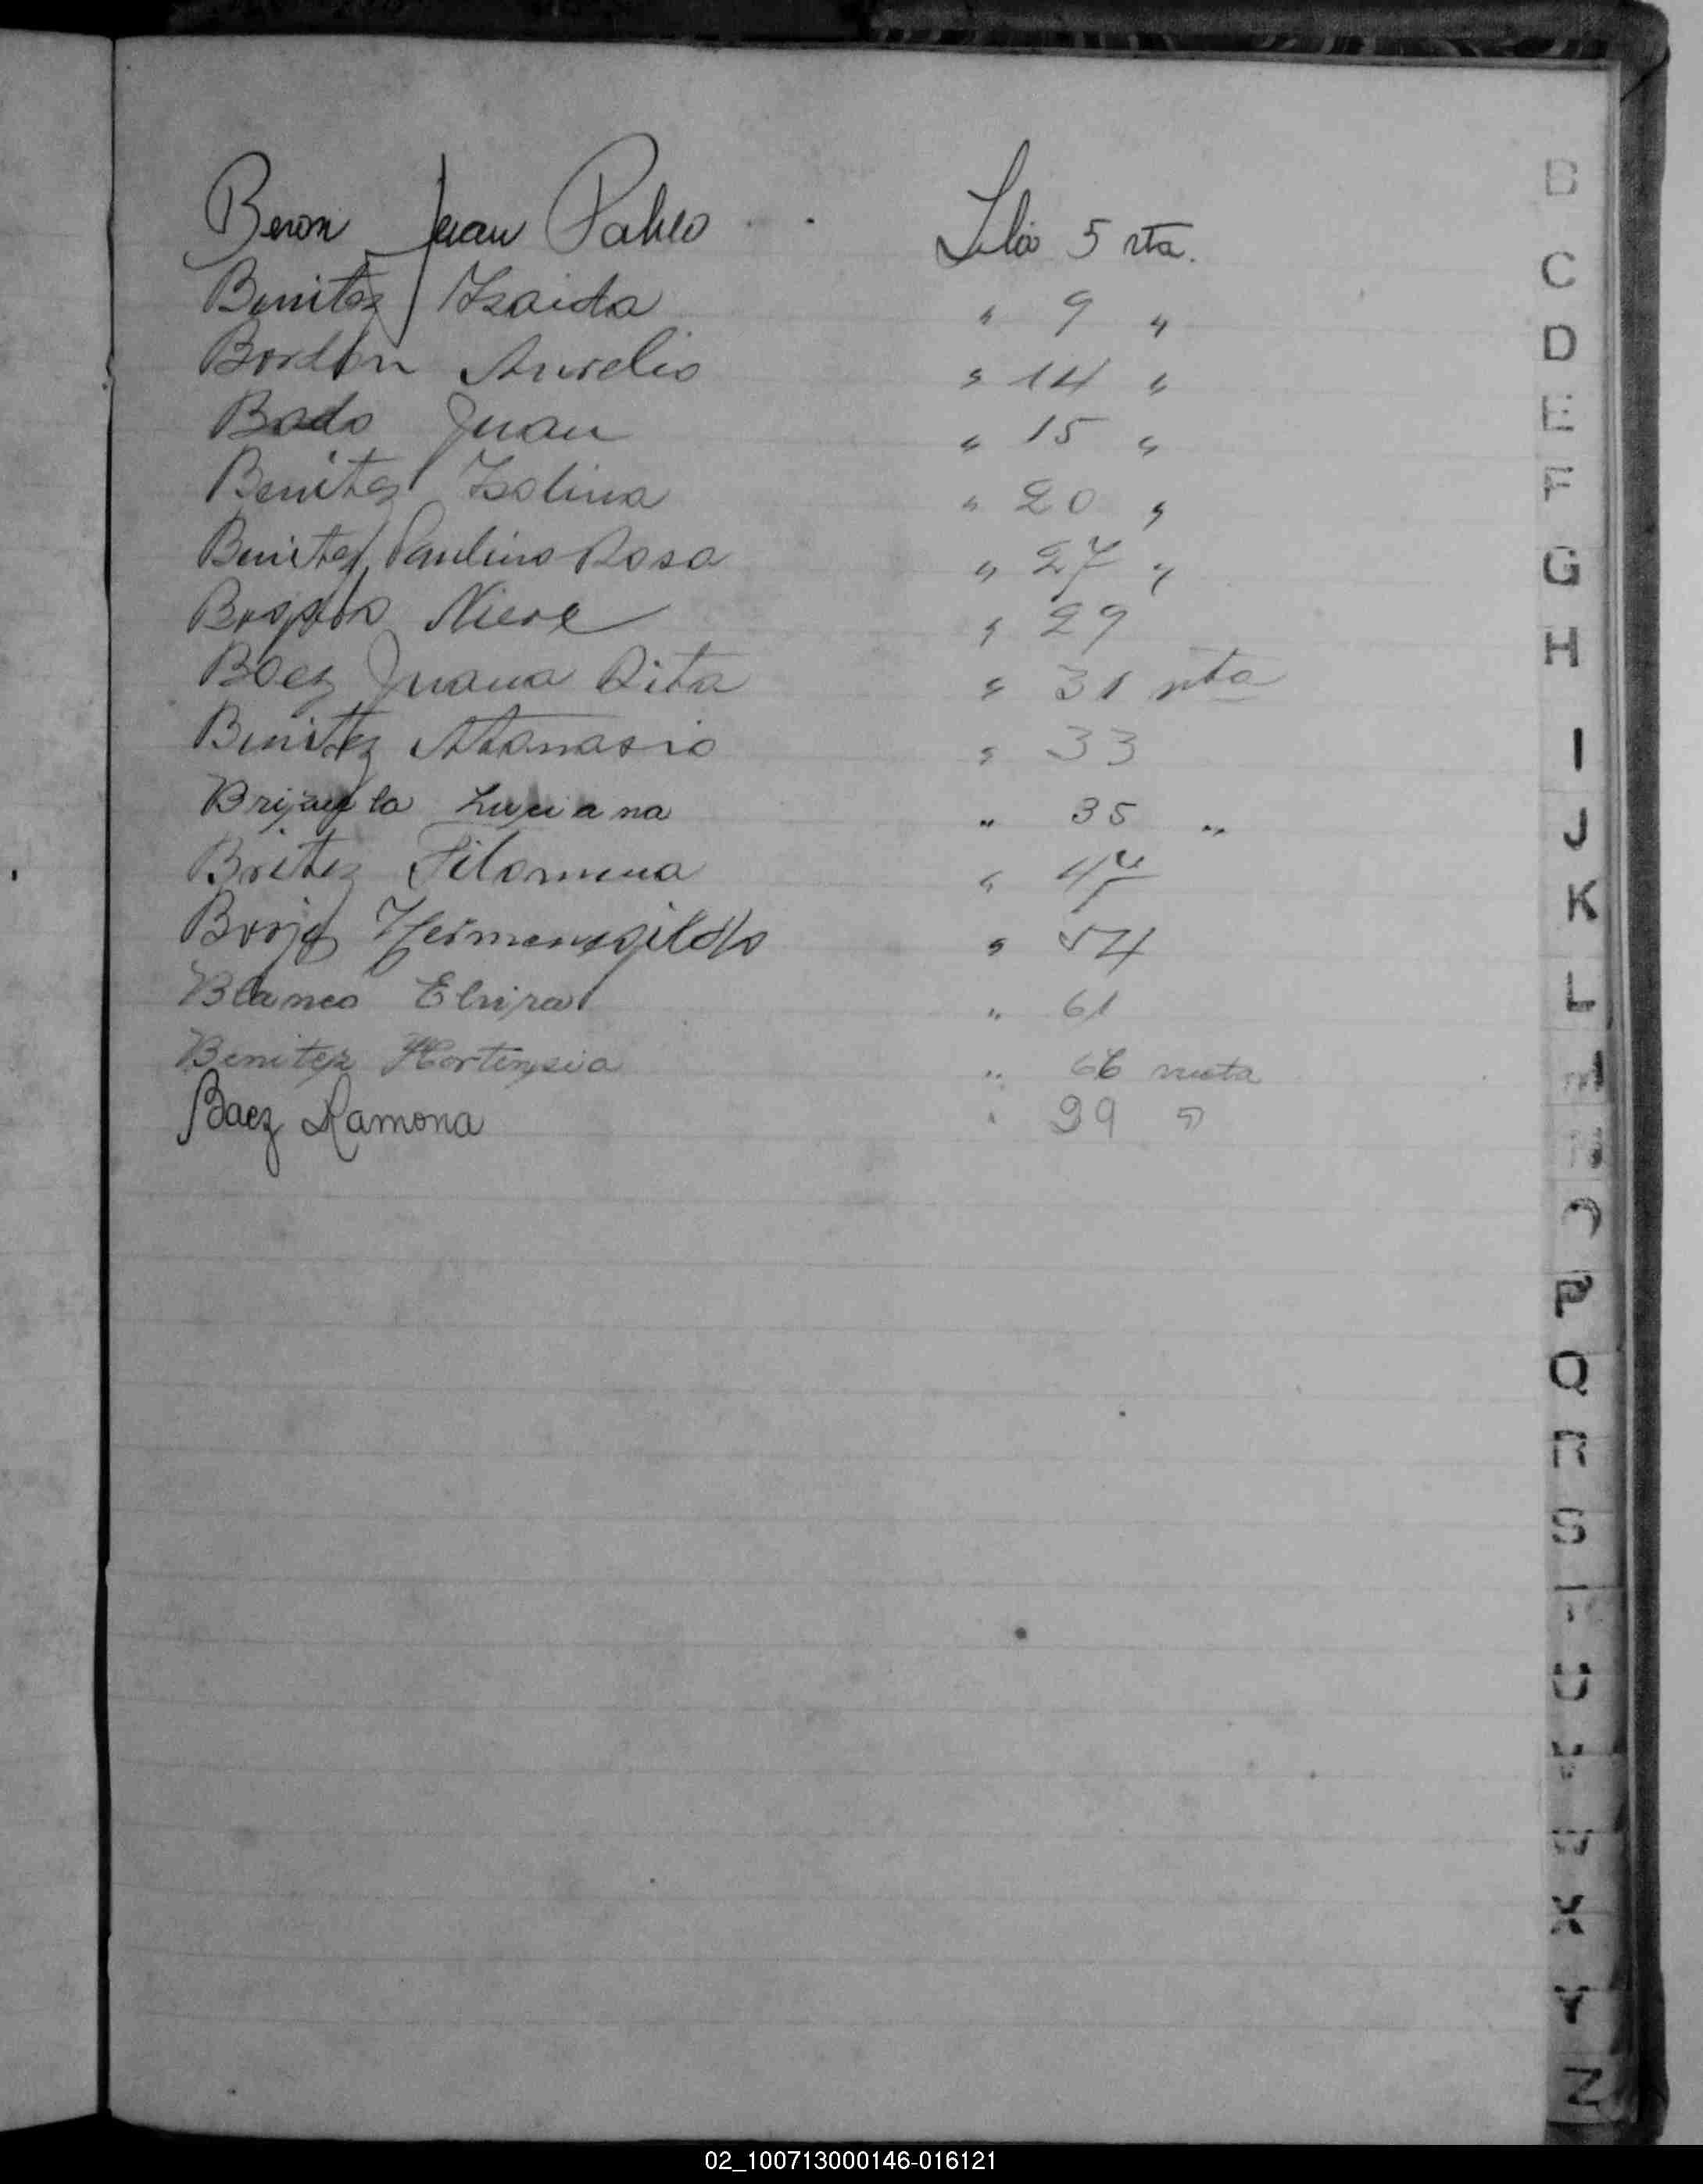 Beron Juan Pablo Folio 5 vta.
Benitez Izaida " 9 "
Bordón Aurelio " 14 "
Bado Juan " 15 "
Benitez Isolina " 20 "
Benitez Paulino Rosa " 27 "
Nieve " 29
Baez Juana Rita " 31 vta
Benitez Atanasio " 33
Luciana " 35 "
Britez Filomena "
Borja Hermenegildo " 54
Blanco Elvira " 61
Benitez Hortensia " 66 vuelta
Baez Ramona " 99 "
B
C
D
E
F
G
H
I
J
K
L
M
N
O
P
Q
R
S
T
U
V
W
X
Y
Z
02_100713000146-016121